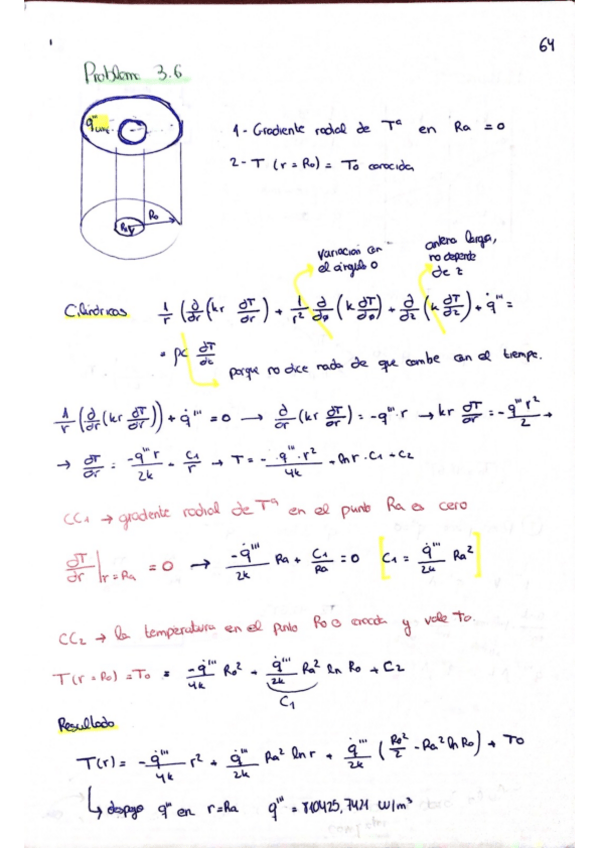 64
Problema 3.6
q'''
1 - Gradiente radial de Tª en Ra = 0
2 - T (r = Ro) = To conocida
Ro
Ra
variación con el ángulo 0
antera larga, no depende de z
Cilíndricas 1/r (∂/∂r (kr ∂T/∂r) + 1/r² ∂/∂ø (k ∂T/∂ø) + ∂/∂z (k ∂T/∂z) + q̇''' =
= ρc ∂T/∂z porque no dice nada de que cambie con el tiempo.
1/r (∂/∂r (kr ∂T/∂r)) + q̇''' = 0 → ∂/∂r (kr ∂T/∂r) = -q''' · r → kr ∂T/∂r = - q''' r²/2 →
→ ∂T/∂r = -q''' r/2k + C1/r → T = - q''' · r²/4k + ln r · C1 + C2
CC1 → gradiente radial de Tª en el punto Ra es cero
∂T/∂r |r=Ra = 0 → -q̇'''/2k Ra + C1/Ra = 0 [C1 = q̇'''/2k Ra²]
CC2 → la temperatura en el punto Ro es conocida y vale To.
T(r = Ro) = To = -q̇'''/4k Ro² + q̇'''/2k Ra² ln Ro + C2
C1
Resultado
T(r) = - q̇'''/4k r² + q̇'''/2k Ra² ln r + q̇'''/2k (Ro²/2 - Ra² ln Ro) + To
↳ despejo q''' en r=Ra q''' = 710425,7421 W/m³